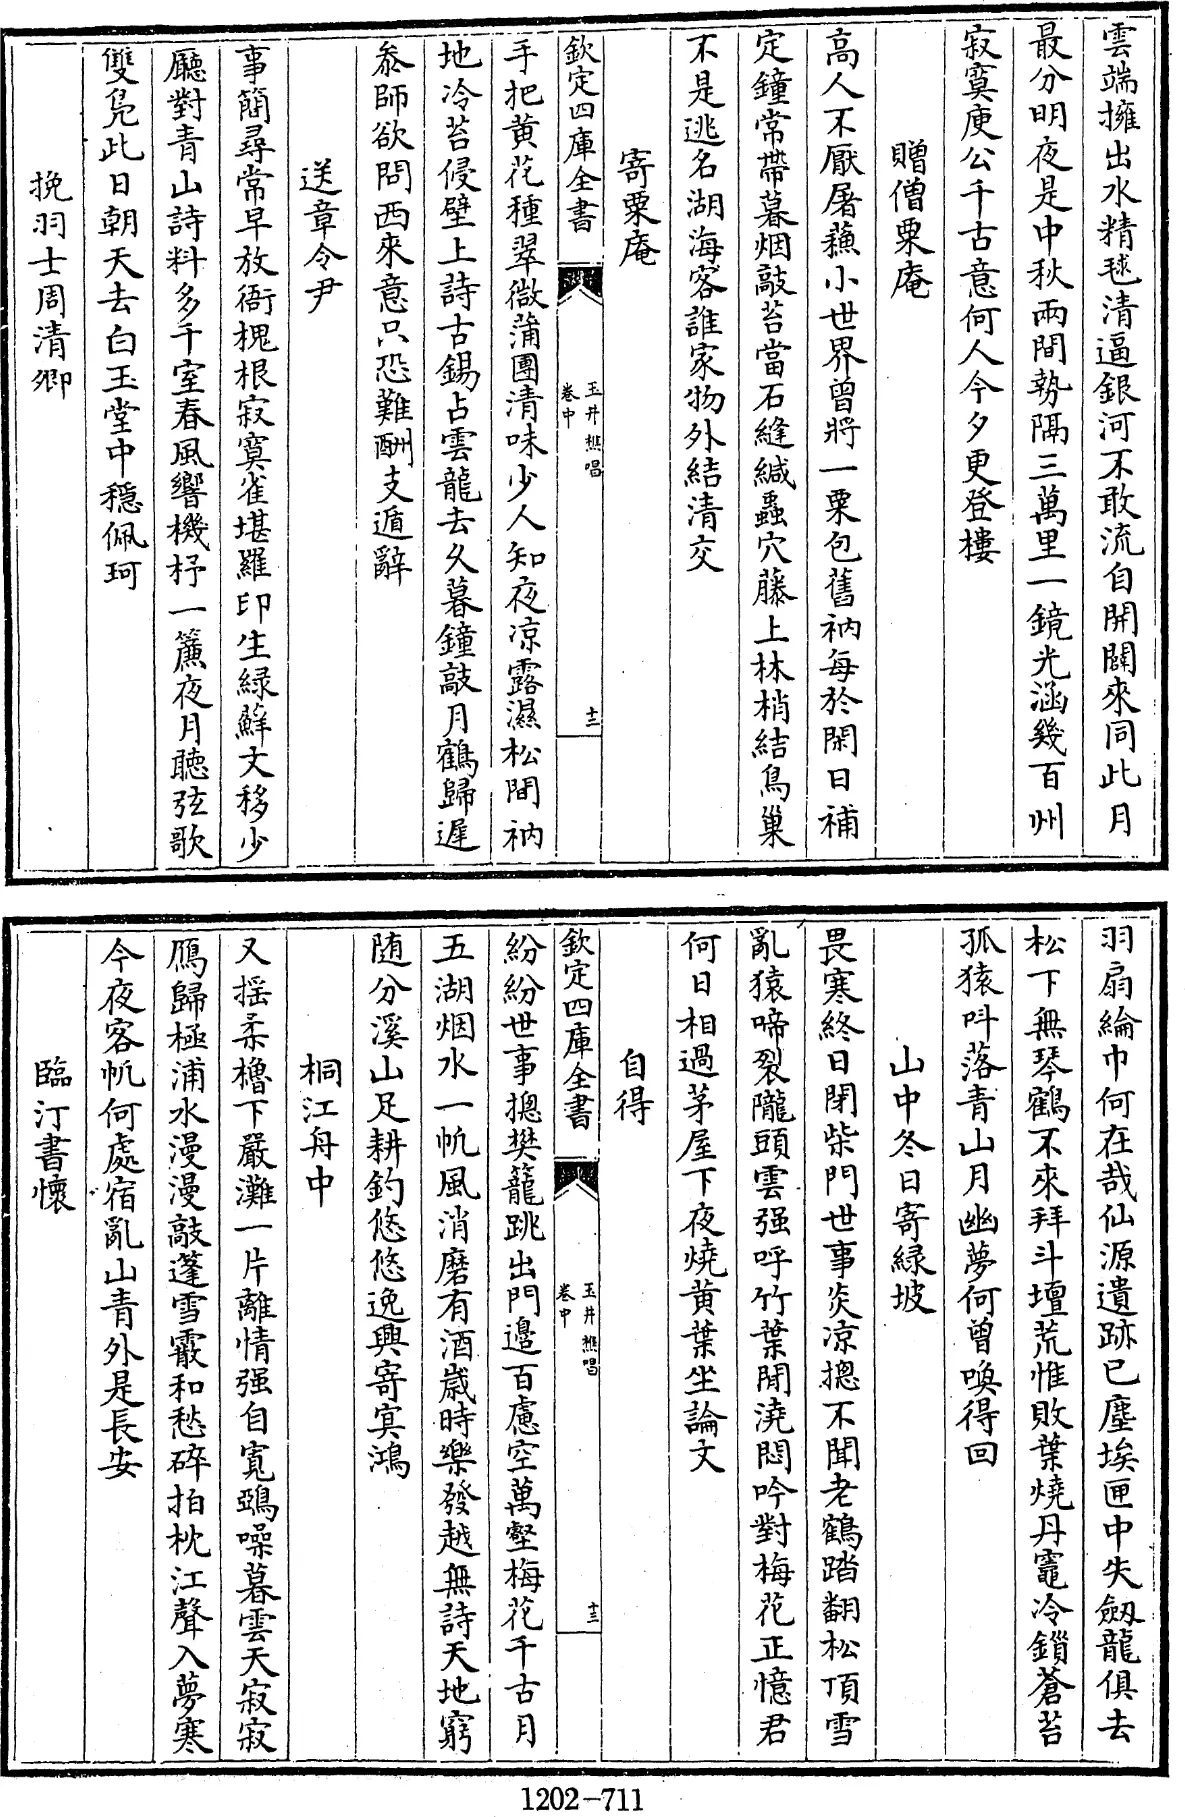 雲端擁出水精毬清逼銀河不敢流自開闢來同此月
最分明夜是中秋兩間勢隔三萬里一鏡光涵幾百州
寂寞庾公千古意何人今夕更登樓
贈僧粟庵
高人不厭屠蘓小世界曾將一粟包舊衲每於閑日補
定鐘常帶暮烟敲苔當石縫緘蟲穴藤上林梢結鳥巢
不是逃名湖海客誰家物外結清交
寄粟庵
欽定四庫全書
玉井樵唱
卷中
十二
手把黄花種翠微蒲團清味少人知夜凉露濕松間衲
地冷苔侵壁上詩古錫占雲龍去久暮鐘敲月鶴歸遲
叅師欲問西來意只恐難酬支遁辭
送章令尹
事簡尋常早放衙槐根寂寞雀堪羅印生緑蘚文移少
廳對青山詩料多千室春風響機杼一簾夜月聽弦歌
雙鳬此日朝天去白玉堂中穩佩珂
挽羽士周清卿
羽扇綸巾何在哉仙源遺跡已塵埃匣中失劔龍俱去
松下無琴鶴不來拜斗壇荒惟敗葉燒丹竈冷鎻蒼苔
孤猿呌落青山月幽夢何曾喚得回
山中冬日寄緑坡
畏寒終日閉柴門世事炎凉摠不聞老鶴踏翻松頂雪
亂猿啼裂隴頭雲强呼竹葉閒澆悶吟對梅花正憶君
何日相過茅屋下夜燒黄葉坐論文
自得
欽定四庫全書
玉井樵唱
卷中
十三
紛紛世事摠樊籠跳出門邉百慮空萬壑梅花千古月
五湖烟水一帆風消磨有酒歲時樂發越無詩天地窮
随分溪山足耕釣悠悠逸興寄冥鴻
桐江舟中
又摇柔櫓下嚴灘一片離情强自寛鵶噪暮雲天寂寂
鴈歸極浦水漫漫敲蓬雪霰和愁碎拍枕江聲入夢寒
今夜客帆何處宿亂山青外是長安
臨汀書懷
1202-711